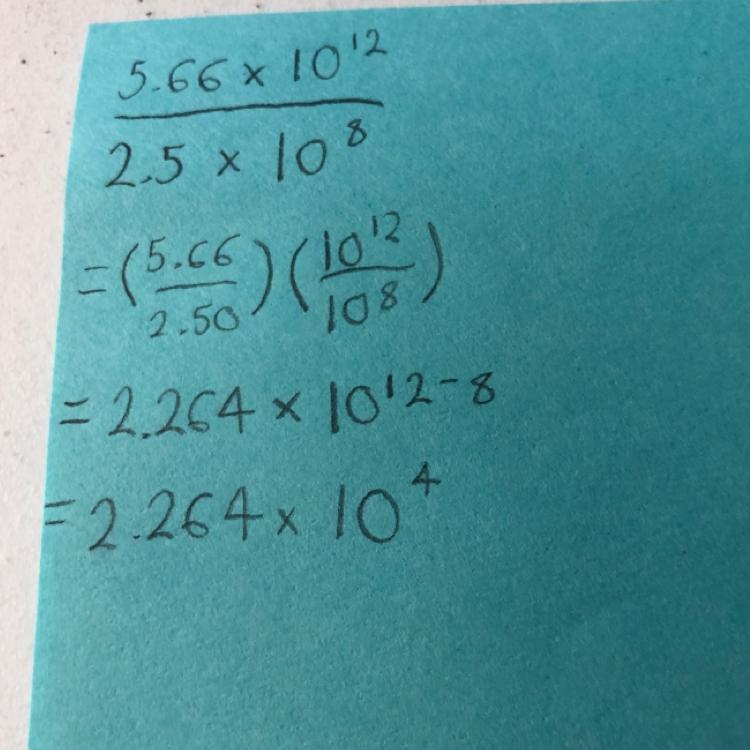 5.66 x 10¹²
2.5 x 10⁸
= (5.66/2.50) (10¹²/10⁸)
= 2.264 x 10¹²⁻⁸
= 2.264 x 10⁴